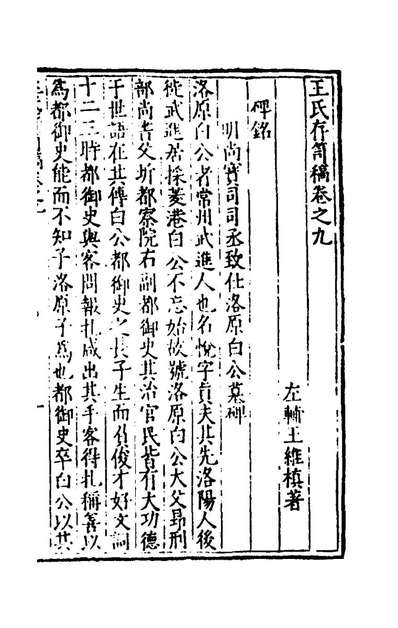 王氏存笥稿卷之九
左輔王維楨著
碑銘
明尚寶司司丞致仕洛原白公墓碑
洛原白公者常州武進人也名悅字貞夫其先洛陽人後
徙武進居採菱港白公不忘始故號洛原白公大父昂刑
部尚書父圻都察院右副都御史其治官民皆有大功德
于世語在其傳白公都御史之長子生而負俊才好文詞
十二三時都御史與客問報札咸出其手客得札稱善以
為都御史能而不知子洛原子為也都御史卒白公以其